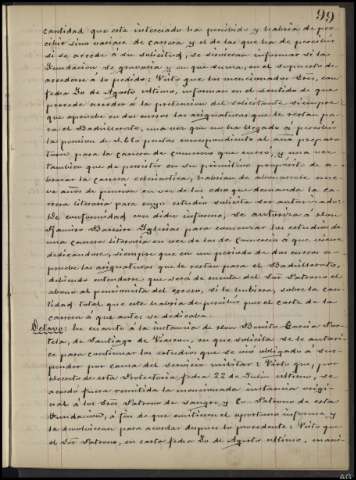 99
cantidad que este interesado ha percibido y habria de per-
cibir sin variar de carrera y el de las que ha de percibir
si se accede á su solicitud, se sirvieran informar si la
Fundacion se gravaria y en que suma, en el supuesto de
accederse á lo pedido: Visto que los mencionados Sres, con
fecha 30 de Agosto ultimo, informan en el sentido de que
procede acceder á la pretension del solicitante siempre
que apruebe en dos cursos las asignaturas que le restan pa-
ra el Bachillerato, una vez que no ha llegado á percibir
la pension de
para la carrera de comercio que cursó, y una vez
tambien que de persistir en su primitivo proposito de
la carrera eclesiastica, habrian de abonarsele nue-
ve años de pension en vez de los odio que demanda la ca-
rrera literaria para cuyo estudio solicita ser autorizado:
De conformidad con dicho informe, se autoriza á Don
Ramiro Barreiro Yglesias para comenzar los estudios de
una carrera literaria en vez de la de Comercio á que viene
dedicandose, siempre que en un periodo de dos cursos
pruebe las asignaturas que le restan para el Bachillerato,
debiendo entenderse que será de cuenta del Sor Patrono el
abono al pensionista del exceso, si le hubiera, sobre la can-
tidad total que este habria de percibir por el coste de la
carrera á que antes se dedicaba.
Octavo: Dió cuenta á la instancia de Don Benito Garcia
de Santiago de Viascon, en que solicita se le autori-
ce para continuar los estudios que se vio obligado á sus-
pender por causa del servicio militar: Visto que, por
decreto de esta Protectoria fecha 22 de Julio ultimo, se
acordó fuera remitida la mencionada instancia origi-
nal á los Sres Patrono de sangre y Co-Patrono de esta
Fundacion, á fin de que emitieran el oportuno informe y
la devolvieran para acordar despues lo procedente: Visto que
el Sor Patrono, en carta fecha 30 de Agosto ultimo, mani-